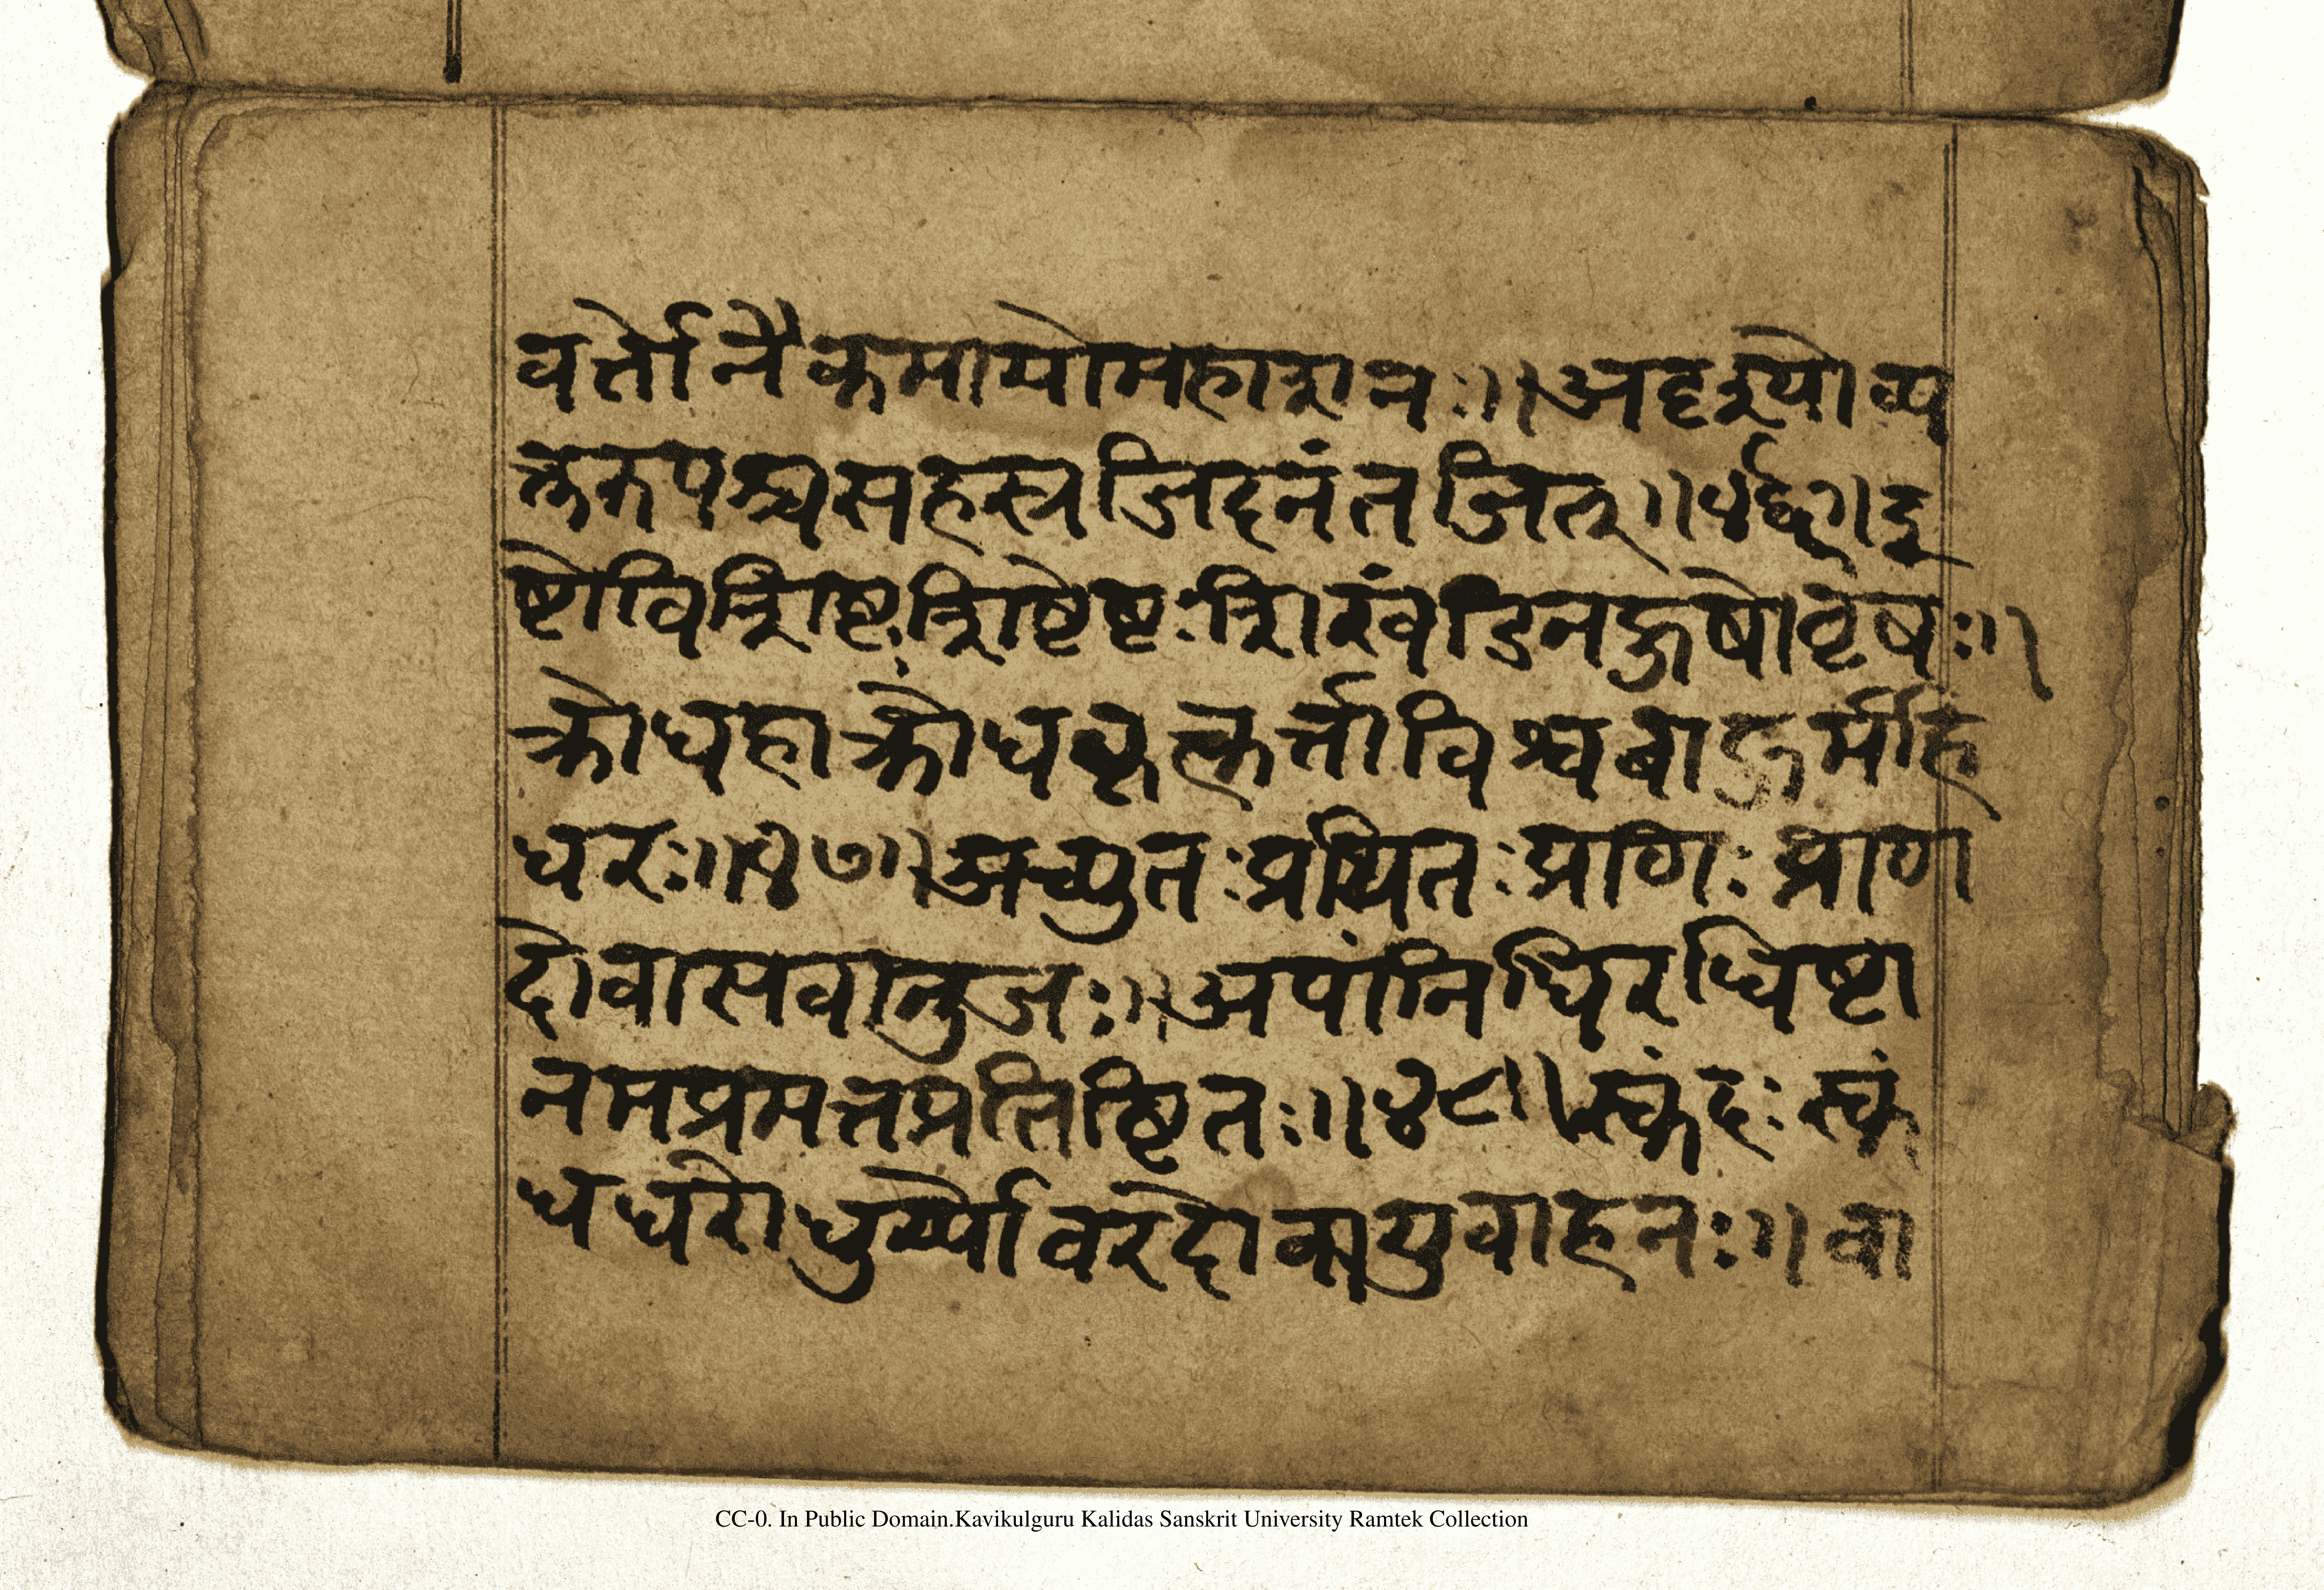 वर्त्तो नैकमायो महाशनः ॥ अदृश्यो व्य
क्तरूपश्च सहस्रजिदनंतजित् ॥ ४६ ॥ इ
ष्टो विशिष्टः शिष्टेष्टः शिखंडी नहुषो वृषः ॥
क्रोधहा क्रोधकृत्कर्त्ता विश्वबाहुर्महि
धरः ॥ ४७ ॥ अच्युतः प्रथितः प्राणः प्राण
दो वासवानुजः ॥ अपांनिधिरधिष्टा
नमप्रमत्तप्रतिष्टितः ॥ ४८ ॥ स्कंदः स्कं
धधरो धुर्य्यो वरदो वायुवाहनः ॥ वा
CC-0. In Public Domain.Kavikulguru Kalidas Sanskrit University Ramtek Collection